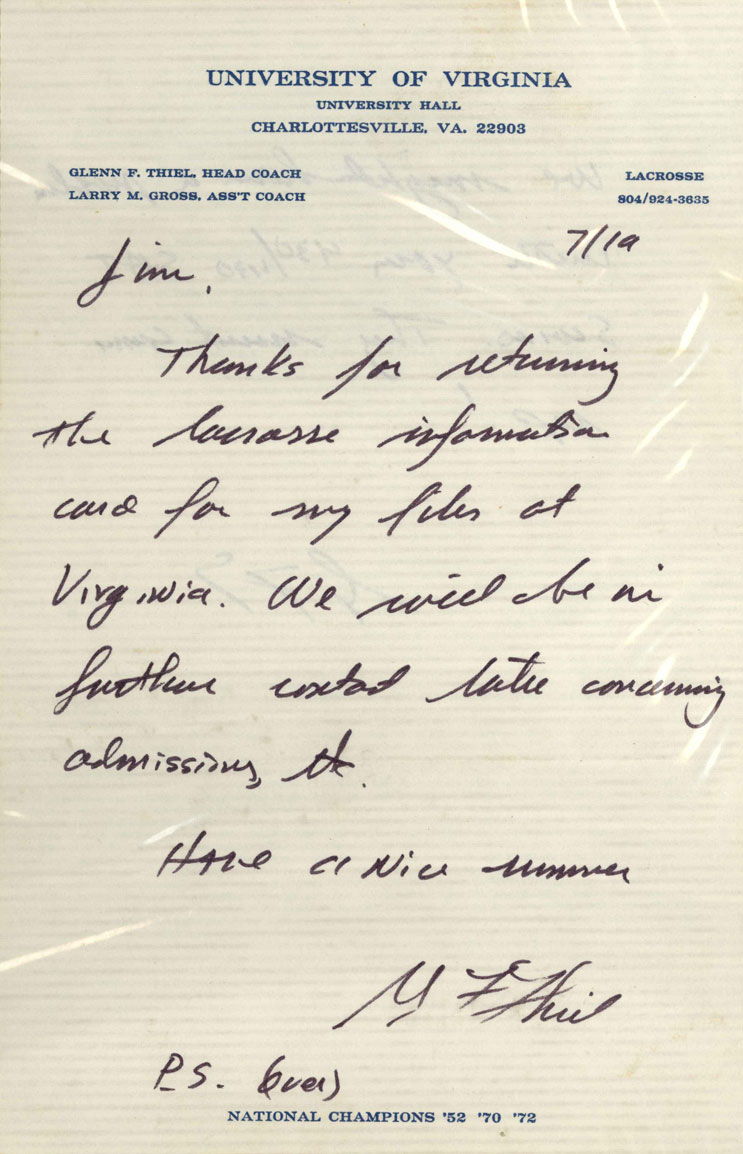 UNIVERSITY OF VIRGINIA
UNIVERSITY HALL
CHARLOTTESVILLE, VA. 22903
GLENN F. THIEL, HEAD COACH
LARRY M. GROSS, ASS'T COACH
LACROSSE
804/924-3635
7/19
Jim,
Thanks for returning
the lacrosse information
card for my files at
Virginia. We will be in
further contact later concerning
admissions, etc.
Have a Nice summer
G F Thiel
P.S. (over)
NATIONAL CHAMPIONS '52 '70 '72